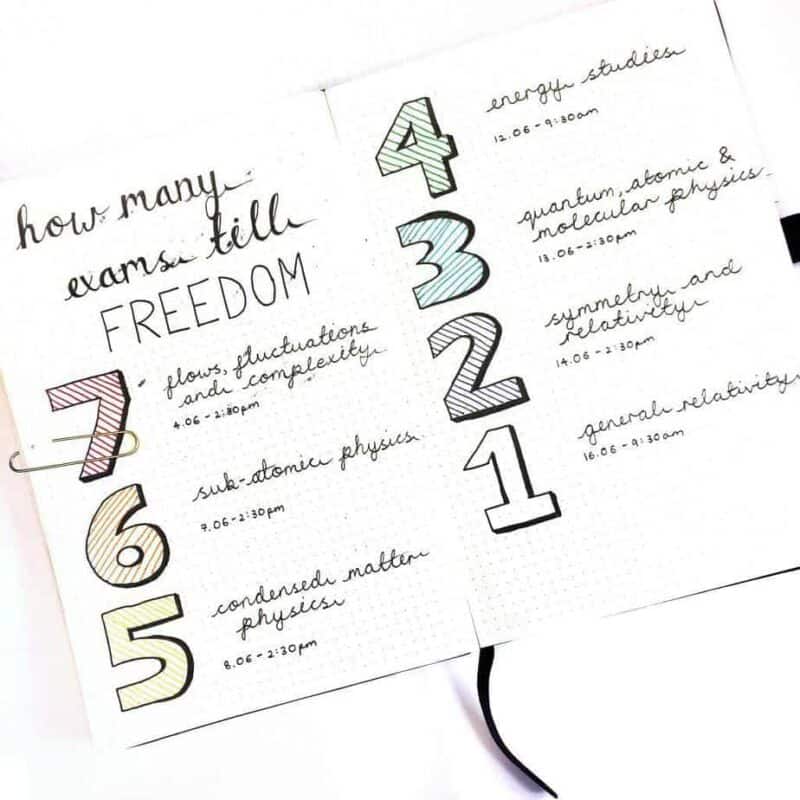 how many
exams till
FREEDOM
7
flows, fluctuations
and complexity
4.06 - 2:30pm
6
sub-atomic physics
7.06 - 2:30pm
5
condensed matter
physics
8.06 - 2:30pm
4
energy studies
12.06 - 9:30am
3
quantum, atomic &
molecular physics
13.06 - 2:30pm
2
symmetry and
relativity
14.06 - 2:30pm
1
general relativity
16.06 - 9:30am